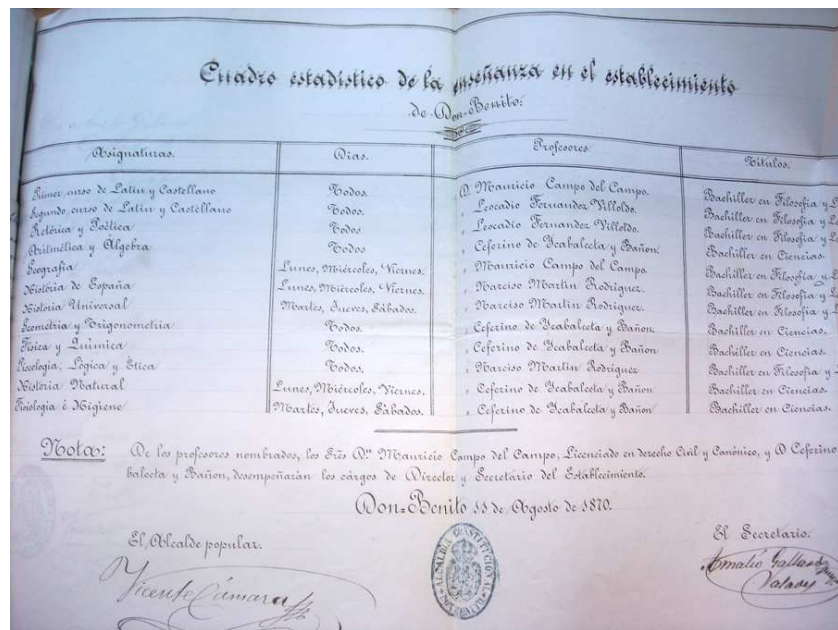 Cuadro estadístico de la enseñanza en el establecimiento
de Don-Benito.
Asignaturas. Dias. Profesores. Títulos.
Primer curso de Latin y Castellano Todos. D. Mauricio Campo del Campo. Bachiller en Filosofía y
Segundo curso de Latin y Castellano Todos. " Leocadio Fernandez Villoldo. Bachiller en Filosofía y
Retórica y Poética Todos. " Leocadio Fernandez Villoldo. Bachiller en Filosofía y
Aritmética y Algebra Todos " Ceferino de Ycabalceta y Bañon. Bachiller en Ciencias.
Geografía Lunes, Miércoles, Viernes. " Mauricio Campo del Campo. Bachiller en Filosofía y
História de España Lunes, Miércoles, Viernes. " Narciso Martin Rodriguez. Bachiller en Filosofía y
História Universal Martes, Jueves, Sábados. " Narciso Martin Rodriguez. Bachiller en Filosofía y
Geométria y Trigonometria Todos. " Ceferino de Ycabalceta y Bañon. Bachiller en Ciencias.
Física y Química Todos. " Ceferino de Ycabalceta y Bañon Bachiller en Ciencias.
Psicologia, Lógica y Ética Todos. " Narciso Martin Rodriguez Bachiller en Filosofía y
História Natural Lunes, Miércoles, Viernes. " Ceferino de Ycabalceta y Bañon Bachiller en Ciencias.
Fisiologia é Higiene Martes, Jueves, Sábados. " Ceferino de Ycabalceta y Bañon Bachiller en Ciencias.
Nota: De los profesores nombrados, los Srēs D.ⁿ Mauricio Campo del Campo, Licenciado en derecho Civil y Canónico, y D Ceferino
balceta y Bañon, desempeñarán los cárgos de Director y Secretario del Establecimiento.
Don-Benito 11 de Agosto de 1870.
El Alcalde popular. El Secretario.
Vicente Cámara Amalio Gallardo
Valades
ALCALDIA CONSTITUCIONAL